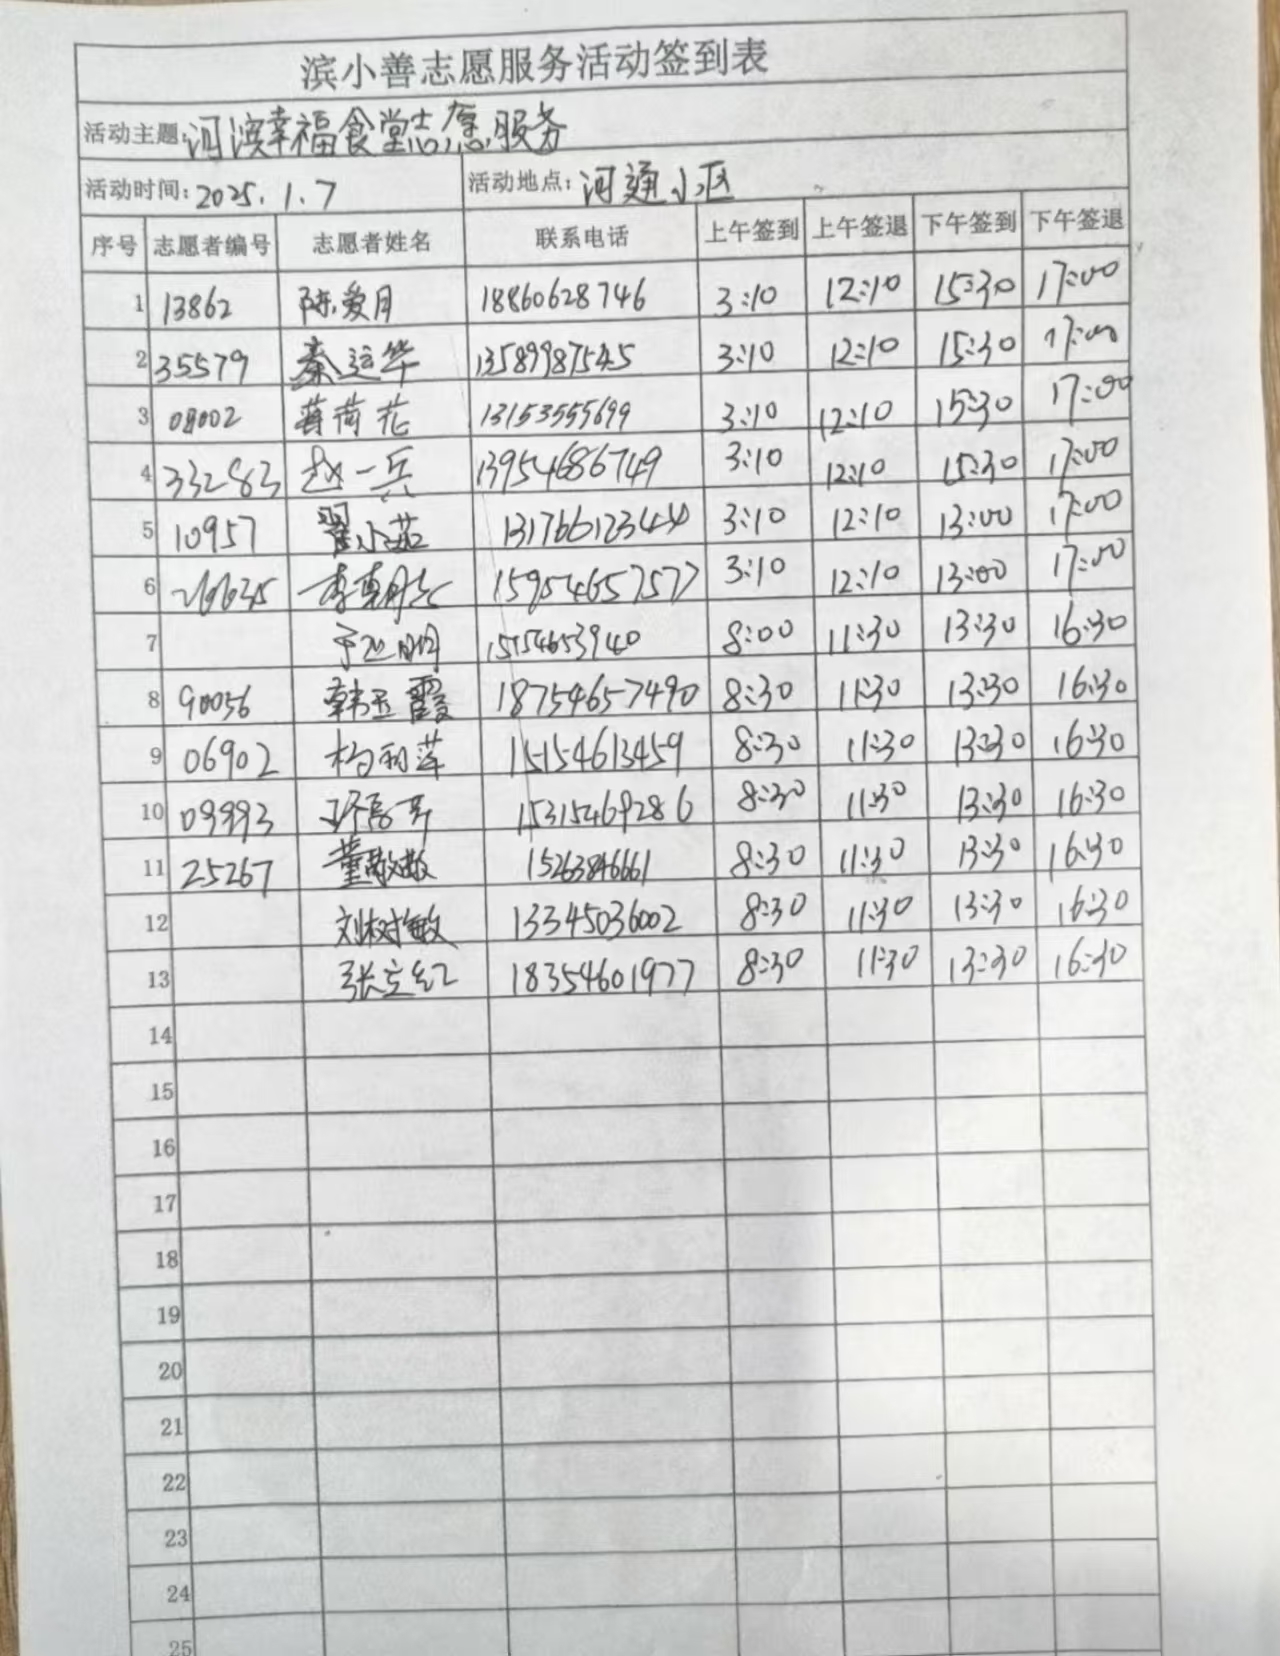 滨小善志愿服务活动签到表
活动主题: 河滨幸福食堂志愿服务
活动时间: 2025.1.7 活动地点: 河通小区
序号 志愿者编号 志愿者姓名 联系电话 上午签到 上午签退 下午签到 下午签退
1 13862 陈爱月 18860628746 3:10 12:10 15:30 17:00
2 35579 秦运华 13589987545 3:10 12:10 15:30 17:00
3 08002 荷花 13153555699 3:10 12:10 15:30 17:00
4 33283 赵一兵 13954686749 3:10 12:10 15:30 17:00
5 10957 翟小茹 13176612344 3:10 12:10 13:00 17:00
6 26635 李 15954657577 3:10 12:10 13:00 17:00
7 15154653940 8:00 11:30 13:30 16:30
8 90056 韩玉霞 18754657490 8:30 11:30 13:30 16:30
9 06902 杨丽萍 15154613459 8:30 11:30 13:30 16:30
10 09993 15315469286 8:30 11:30 13:30 16:30
11 25267 董敬敬 15263846661 8:30 11:30 13:30 16:30
12 刘树敏 13345036002 8:30 11:30 13:30 16:30
13 张立红 18354601977 8:30 11:30 13:30 16:30
14
15
16
17
18
19
20
21
22
23
24
25